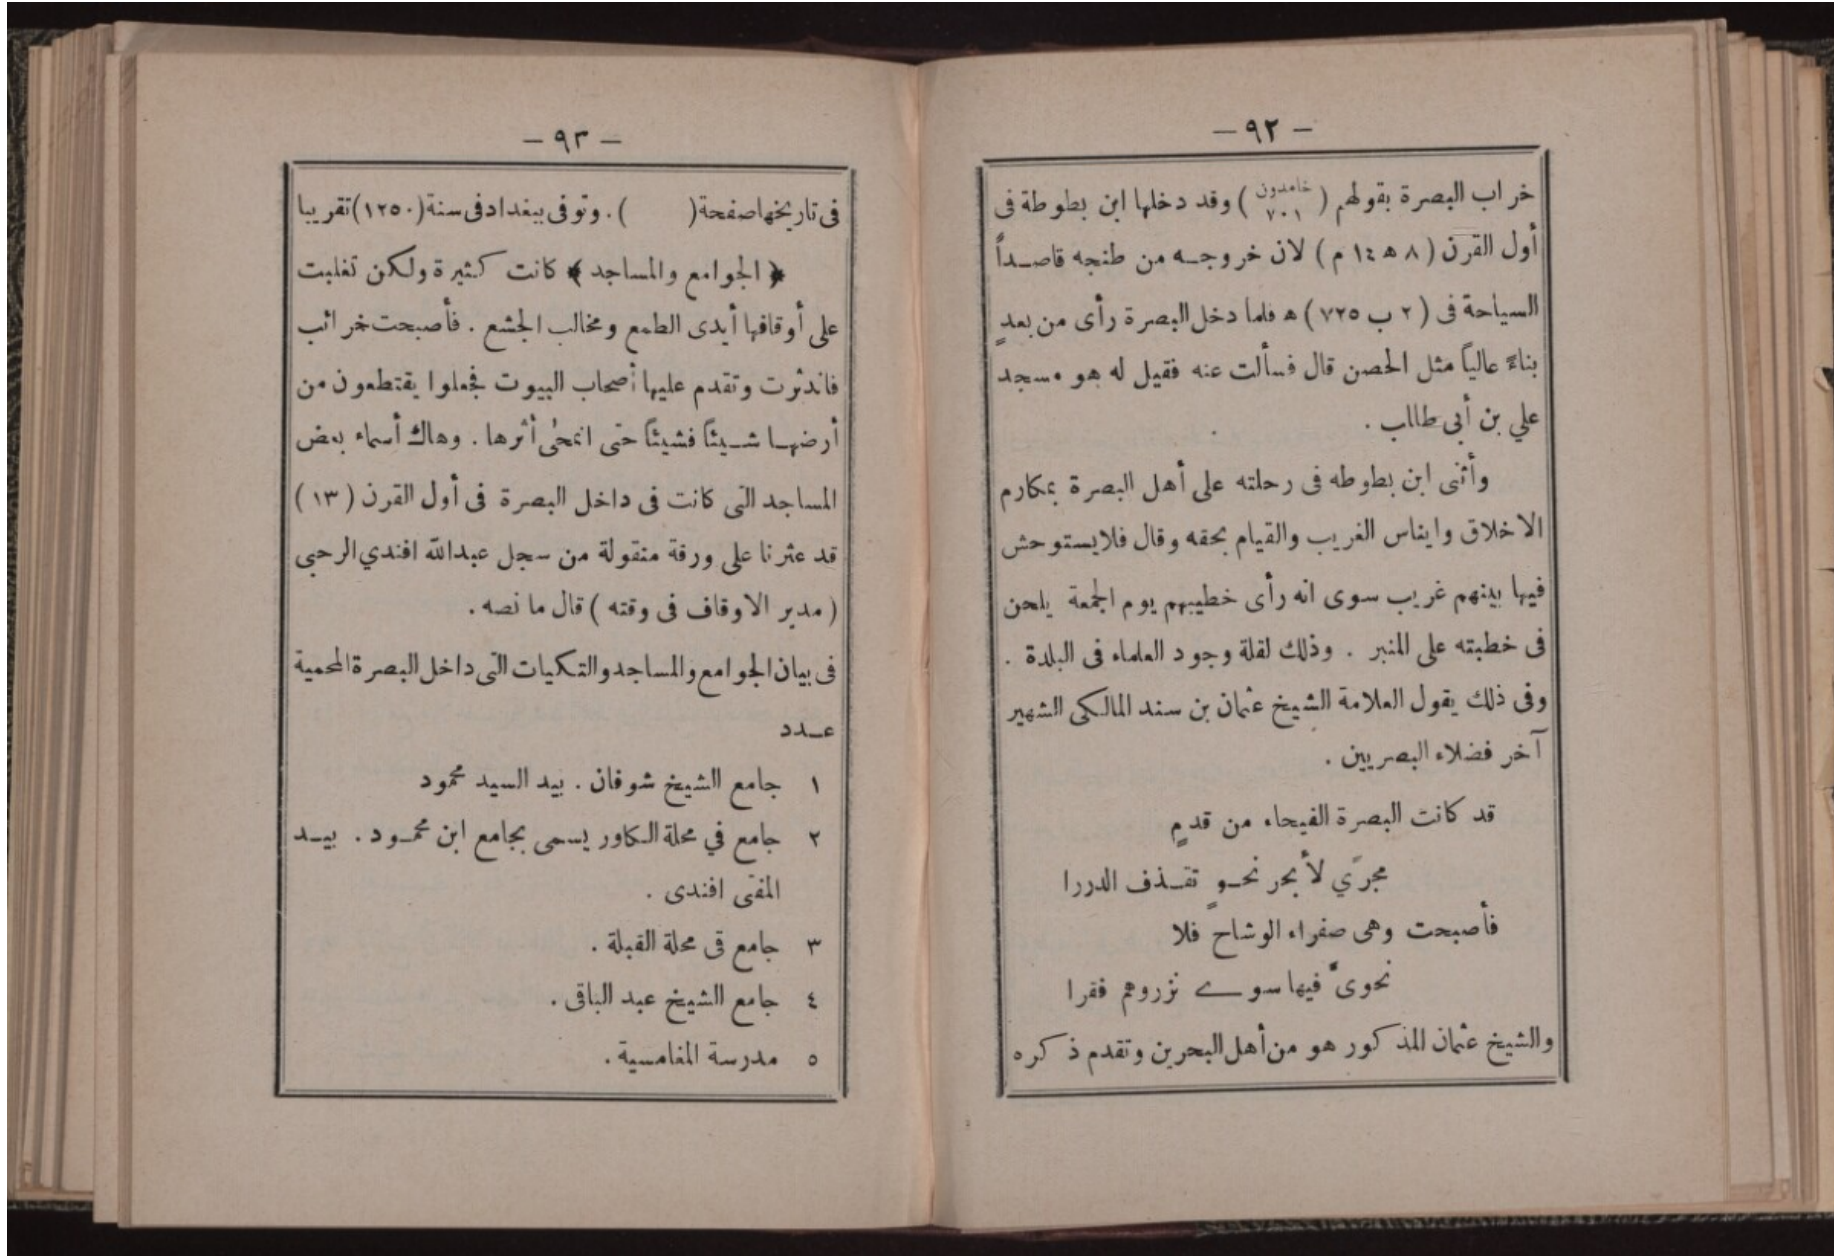 — ٩٢ —
خراب البصرة بقولهم ( خامدون ٧٠١ ) وقد دخلها ابن بطوطة فى
أول القرن ( ٨ ھ ١٤ م ) لان خروجـه من طنجه قاصـداً
السياحة فى ( ٢ ب ٧٢٥ ) ھ فلما دخل البصرة رأى من بعدٍ
بناءً عالياً مثل الحصن قال فسألت عنه فقيل له هو مسجد
علي بن أبى طالب .
وأثنى ابن بطوطه فى رحلته على أهل البصرة بمكارم
الاخلاق وايناس الغريب والقيام بحقه وقال فلايستوحش
فيها بينهم غريب سوى انه رأى خطيبهم يوم الجمعة يلحن
فى خطبته على المنبر . وذلك لقلة وجود العلماء فى البلدة .
وفى ذلك يقول العلامة الشيخ عثمان بن سند المالكى الشهير
آخر فضلاء البصريين .
قد كانت البصرة الفيحاء من قدمٍ
مجرًي لأبحر نحـوٍ تقـذف الدررا
فأصبحت وهى صفراء الوشاح فلا
نحوىٌ فيها سوے نزروهم فقرا
والشيخ عثمان المذكور هو من أهل البحرين وتقدم ذكره
— ٩٣ —
فى تاريخها صفحة ( ) . وتوفى ببغداد فى سنة (١٢٥٠) تقريبا
﴿ الجوامع والمساجد ﴾ كانت كثيرة ولكن تغلبت
على أوقافها أيدى الطمع ومخالب الجشع . فأصبحت خرائب
فاندثرت وتقدم عليها أصحاب البيوت فجعلوا يقتطعون من
أرضهـا شـيئاً فشيئاً حتى انمحُى أثرها . وهاك أسماء بعض
المساجد التى كانت فى داخل البصرة فى أول القرن ( ١٣ )
قد عثرنا على ورقة منقولة من سجل عبدالله افندي الرحبى
( مدير الاوقاف فى وقته ) قال ما نصه .
فى بيان الجوامع والمساجد والتكيات التى داخل البصرة المحمية
عـدد
١ جامع الشيخ شوفان . بيد السيد محمود
٢ جامع في محلة الكاور يسمى بجامع ابن محمـود . بيـد
المفتى افندى .
٣ جامع قى محلة القبلة .
٤ جامع الشيخ عبد الباقى .
٥ مدرسة المغامسية .